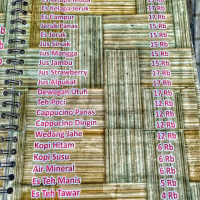 Es Kelapa Jeruk 17 Rb
Es Campur 17 Rb
Jeruk Panas 15 Rb
Es Jeruk 15 Rb
Jus Sirsak 15 Rb
Jus Mangga 15 Rb
Jus Jambu 15 Rb
Jus Strawberry 17 Rb
Jus Alpukat 17 Rb
Dewegan Utuh 17 Rb
Teh Poci 12 Rb
Cappucino Panas 12 Rb
Cappucino Dingin 12 Rb
Wedang Jahe 12 Rb
Kopi Hitam 6 Rb
Kopi Susu 6 Rb
Air Mineral 6 Rb
Es Teh Manis 5 Rb
Es Teh Tawar 4 Rb